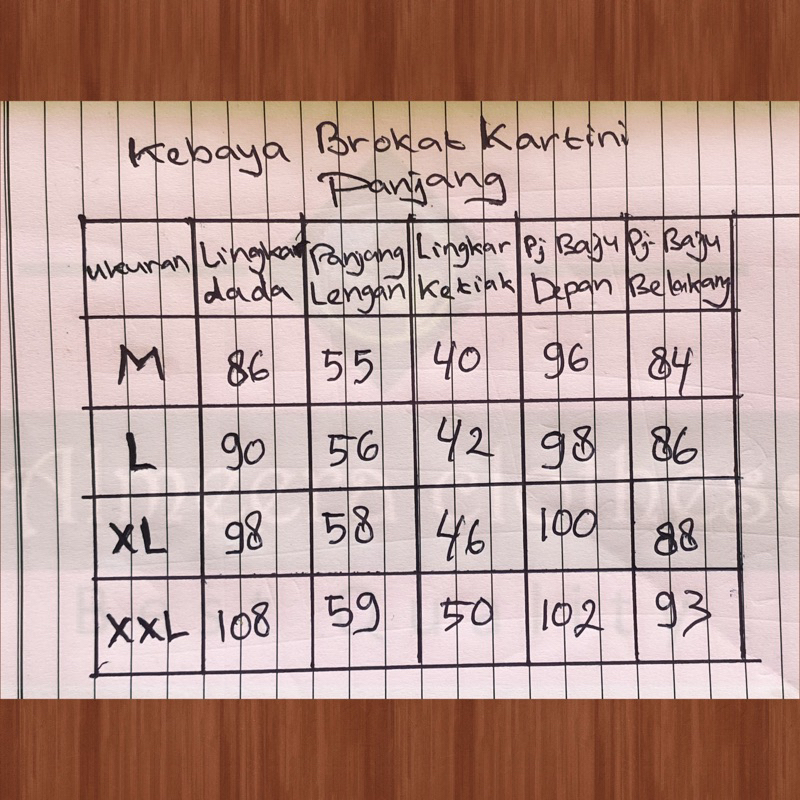 Kebaya Brokat Kartini
Panjang
Ukuran Lingkar dada Panjang Lengan Lingkar Ketiak Pj Baju Depan Pj- Baju Belakang
M 86 55 40 96 84
L 90 56 42 98 86
XL 98 58 46 100 88
XXL 108 59 50 102 93